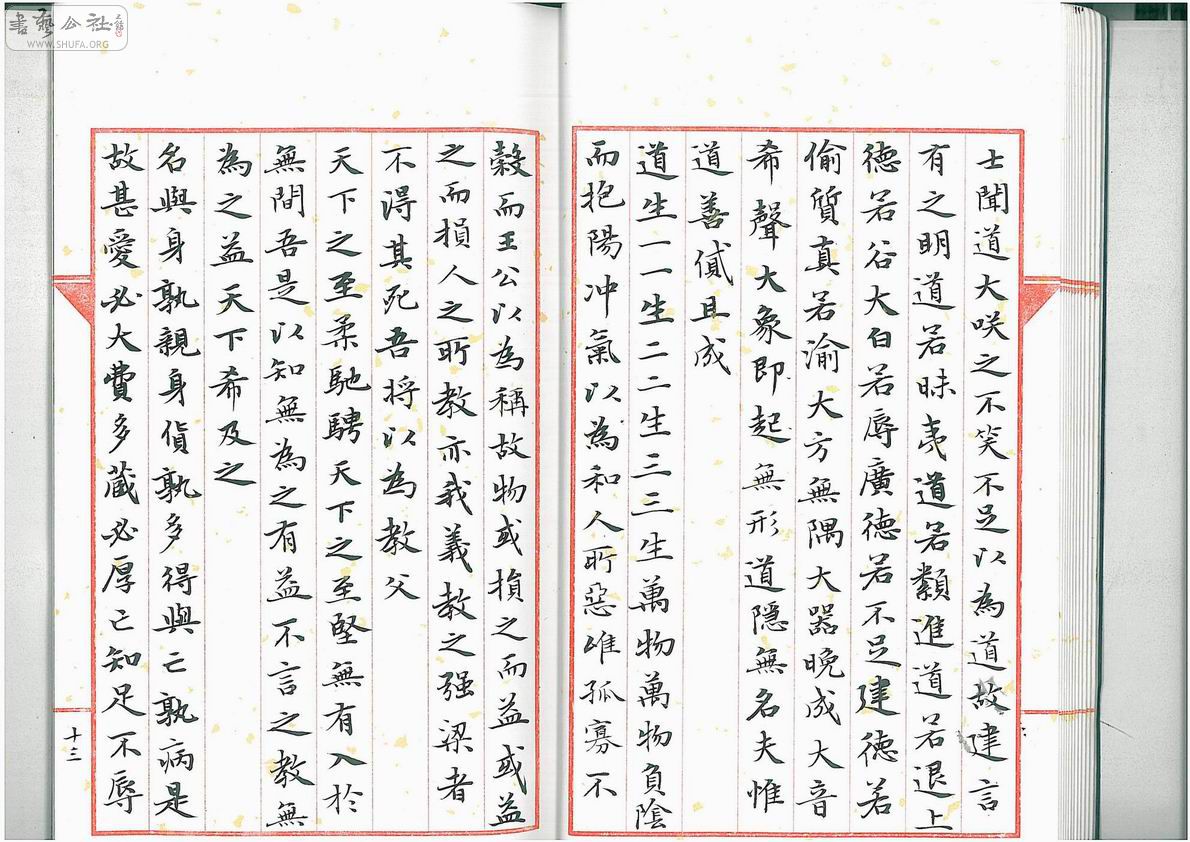 士聞道大咲之不笑不足以為道故建言
有之明道若昧夷道若纇進道若退上
德若谷大白若辱廣德若不足建德若
偷質真若渝大方無隅大器晚成大音
希聲大象即起無形道隱無名夫惟
道善貸且成
道生一一生二二生三三生萬物萬物負陰
而抱陽冲氣以為和人所惡唯孤寡不
穀而王公以為稱故物或損之而益或益
之而損人之所教亦我義教之强梁者
不得其死吾將以為教父
天下之至柔馳騁天下之至堅無有入於
無間吾是以知無為之有益不言之教無
為之益天下希及之
名與身孰親身與貨孰多得與亡孰病是
故甚愛必大費多藏必厚亡知足不辱
十三
書藝公社
WWW.SHUFA.ORG